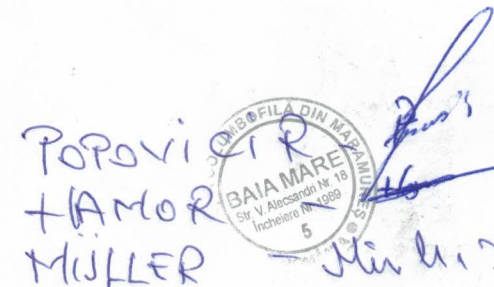 POPOVICI R -
HAMOR -
MÜLLER -
COLUMBOFILA DIN MARAMUREȘ
BAIA MARE
Str. V. Alecsandri Nr. 18
Încheiere Nr. 1989
5